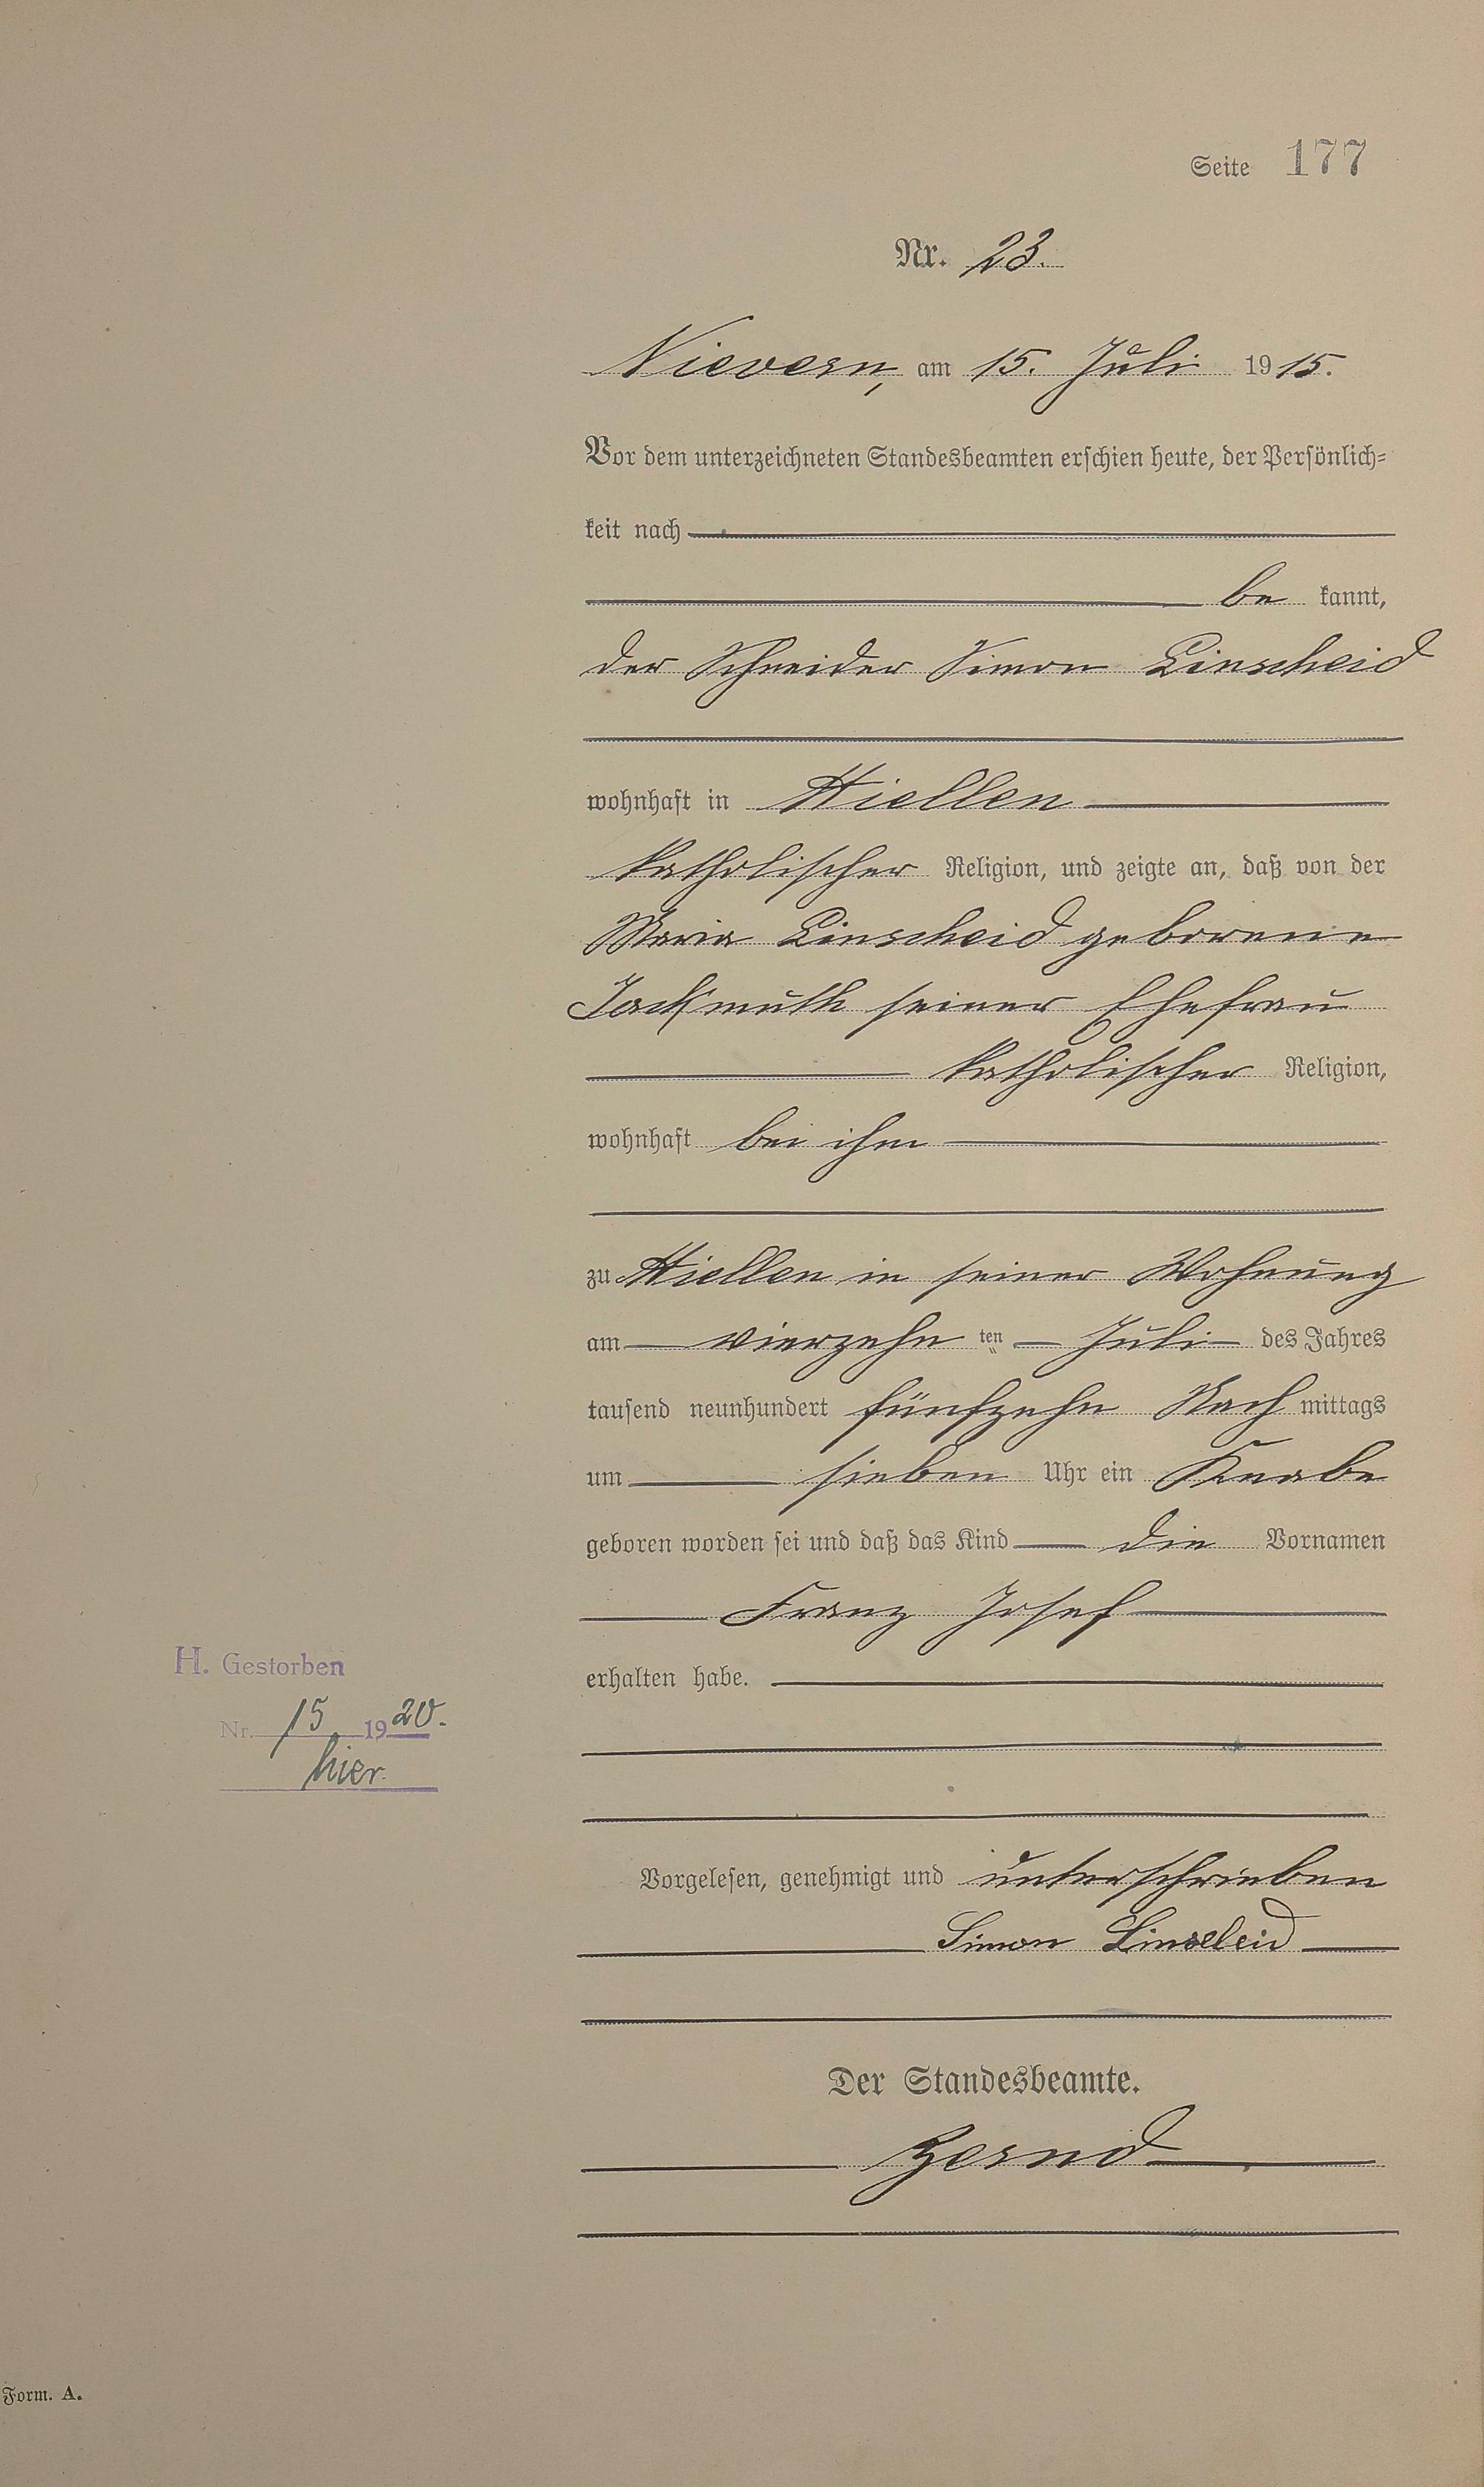 Seite 177
Nr. 23.
Nievern, am 15. Juli 1915.
Vor dem unterzeichneten Standesbeamten erschien heute, der Persönlich-
keit nach
be kannt,
der Schneider Simon Linscheid
wohnhaft in Miellen
katholischer Religion, und zeigte an, daß von der
Maria Linscheid geborene
Jackmuth seiner Ehefrau
katholischer Religion,
wohnhaft bei ihm
zu Miellen in seiner Wohnung
am vierzehn ten Juli des Jahres
tausend neunhundert fünfzehn Nach mittags
um sieben Uhr ein Knabe
geboren worden sei und daß das Kind die Vornamen
Franz Josef
erhalten habe.
H. Gestorben
Nr. 15 1920.
hier.
Vorgelesen, genehmigt und unterschrieben
Simon Linscheid
Der Standesbeamte.
Zernd
Form. A.